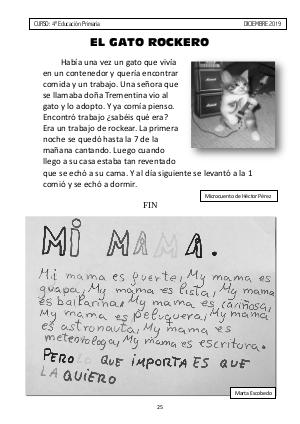 CURSO: 4º Educación Primaria DICIEMBRE 2019
EL GATO ROCKERO
Había una vez un gato que vivía
en un contenedor y quería encontrar
comida y un trabajo. Una señora que
se llamaba doña Trementina vio al
gato y lo adopto. Y ya comía pienso.
Encontró trabajo ¿sabéis qué era?
Era un trabajo de rockear. La primera
noche se quedó hasta la 7 de la
mañana cantando. Luego cuando
llego a su casa estaba tan reventado
que se echó a su cama. Y al día siguiente se levantó a la 1
comió y se echó a dormir.
Microcuento de Héctor Pérez
FIN
MI MAMA.
Mi mama es fuerte, My mama es
guapa, My mama es lista, My mama
es bailarina, My mama es cariñosa,
My mama es peluquera, My mama
es astronauta, My mama es
meteorologa, My mama es escritora.
PERO LO QUE IMPORTA ES QUE
LA QUIERO
Marta Escobedo
25